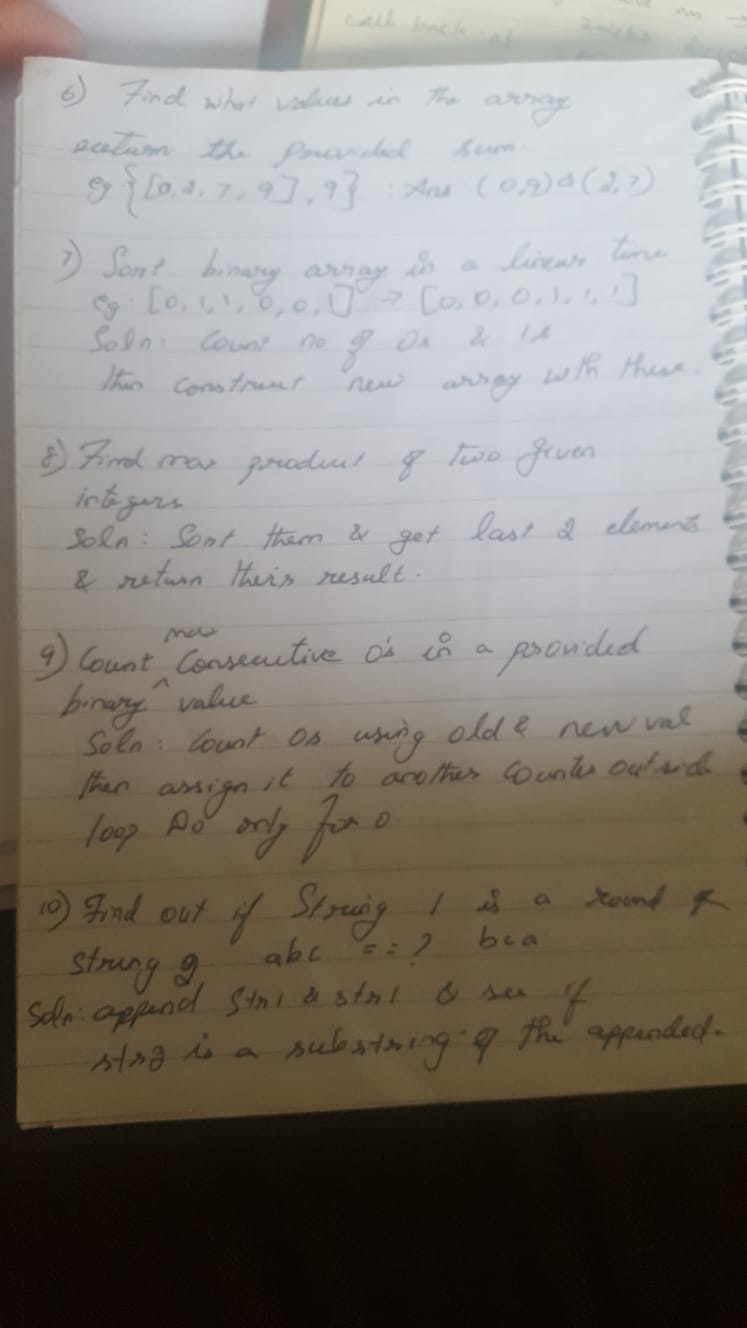 call back
6) Find what values in the array
return the provided sum
eg {[0,2,7,9],9} : Ans (0,9) & (2,7)
7) Sort binary array in a linear time
eg: [0,1,1,0,0,1] → [0,0,0,1,1,1]
Soln: Count no of 0s & 1s
then construct new array with these.
8) Find max product of two given
integers
Soln: Sort them & get last 2 elements
& return their result.
9) Count max Consecutive 0's in a provided
binary value
Soln: Count 0s using old & new val
then assign it to another counter outside
loop Do only for 0.
10) Find out if String 1 is a round
string 2 abc ==? bca
Soln: append Str1 & str1 & see if
str2 is a substring of the appended.